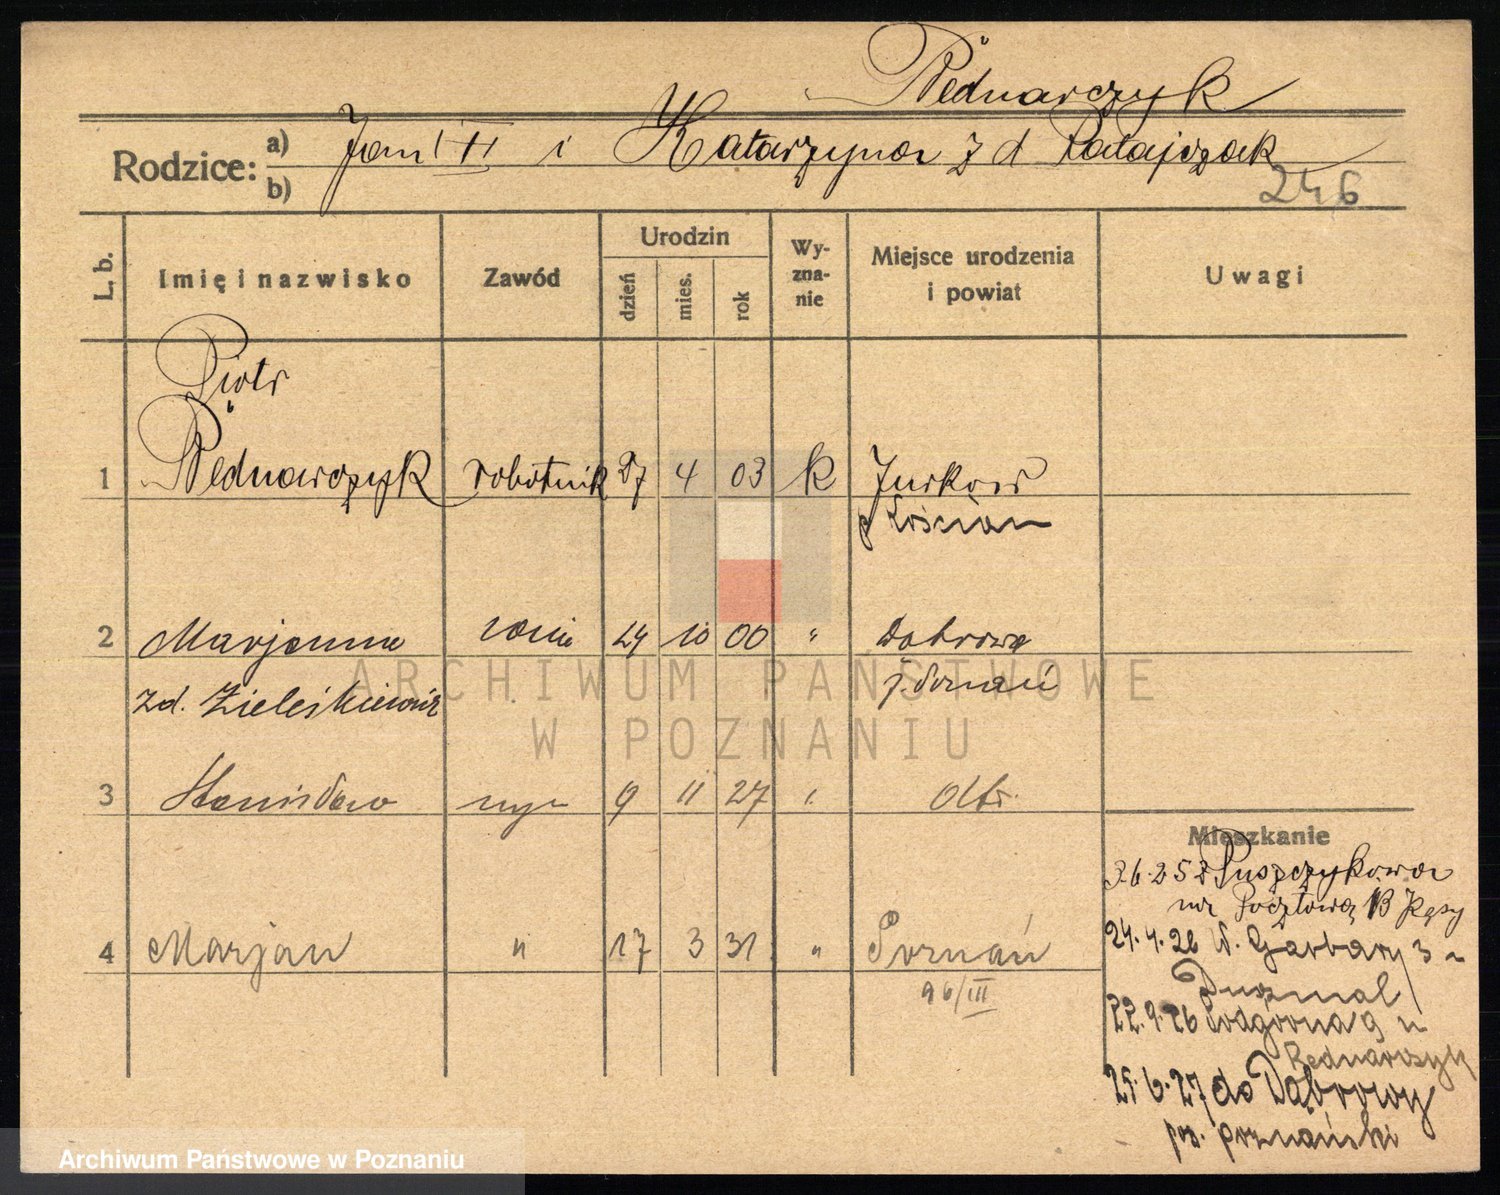 Bednarczyk
Rodzice: a) Jan III i Katarzyna z d Ratajczak
b)
246
L. b. Imię i nazwisko Zawód Urodzin dzień mies. rok Wy-zna-nie Miejsce urodzenia i powiat Uwagi
Piotr
1 Bednarczyk robotnik 27 4 03 k Jurkowo
p Kościan
2 Marjanna żona 24 10 00 " Dąbrowa
zd. p. Poznań
3 Stanisław syn 9 11 27 "
Mieszkanie
Puszczykowa
Pocztowa
4 Marjan " 17 3 31 " Poznań
96/III
24.4.26 W. Garbary 3
22.9.26 Podgórna 9 u
Bednarczyk
25.6.27 do Dąbrowy
poznański
ARCHIWUM PAŃSTWOWE
W POZNANIU
Archiwum Państwowe w Poznaniu